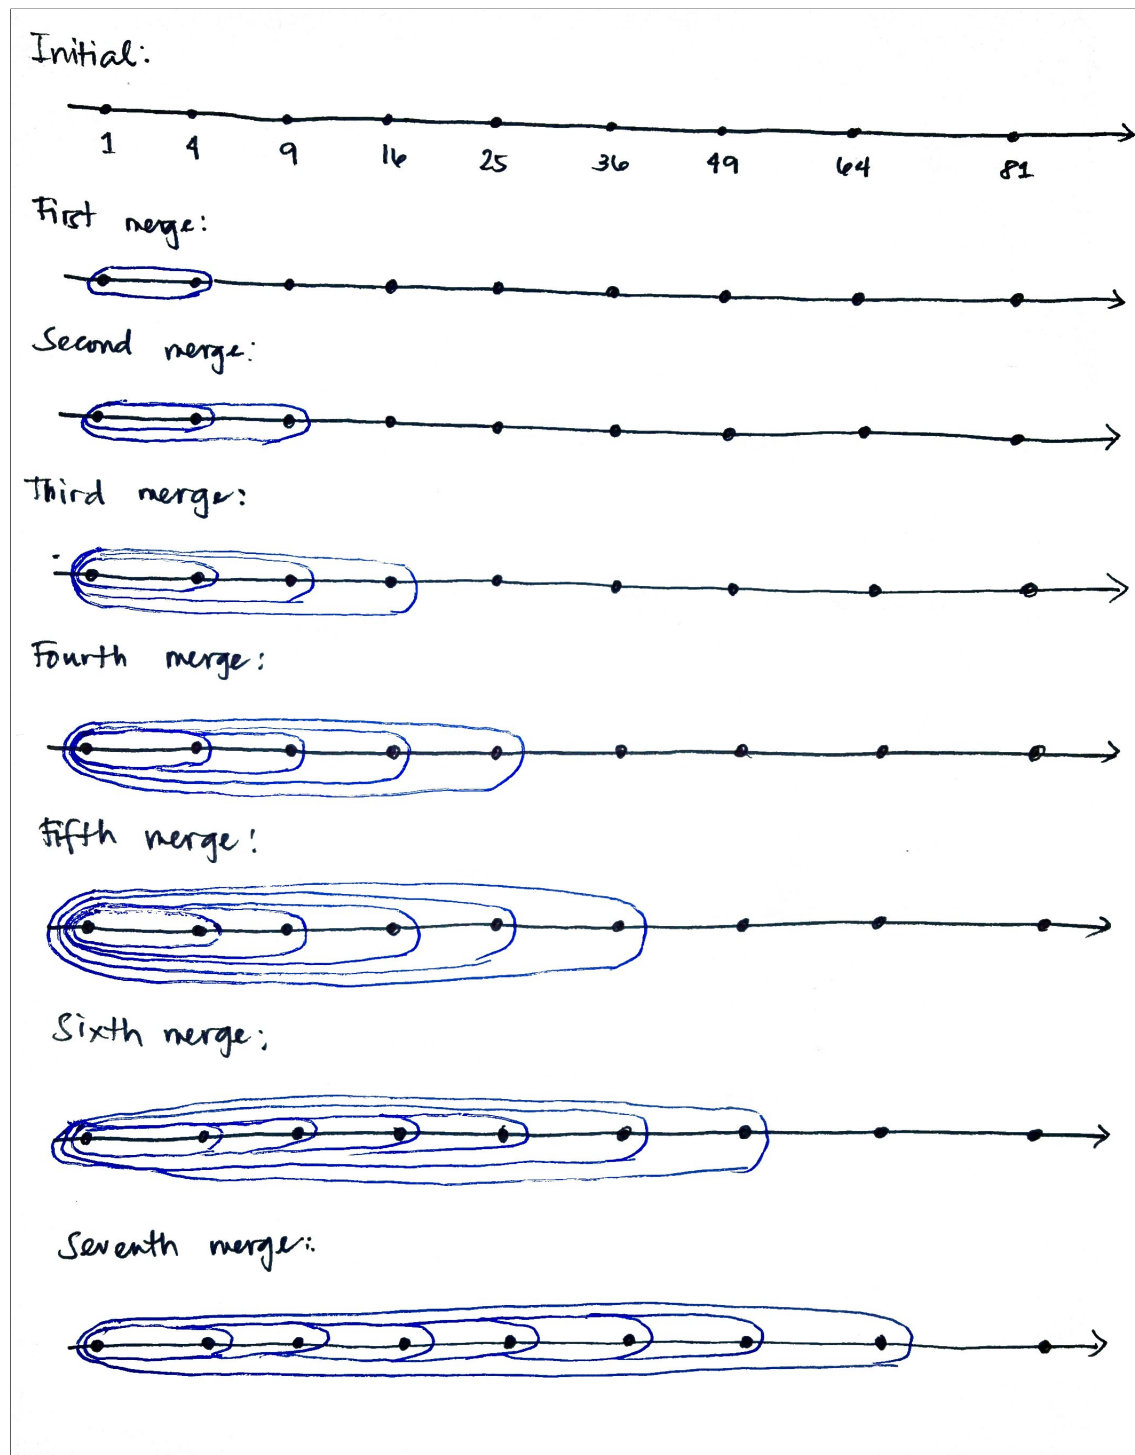 Initial:
1 4 9 16 25 36 49 64 81
First merge:
Second merge:
Third merge:
Fourth merge:
Fifth merge:
Sixth merge:
Seventh merge: